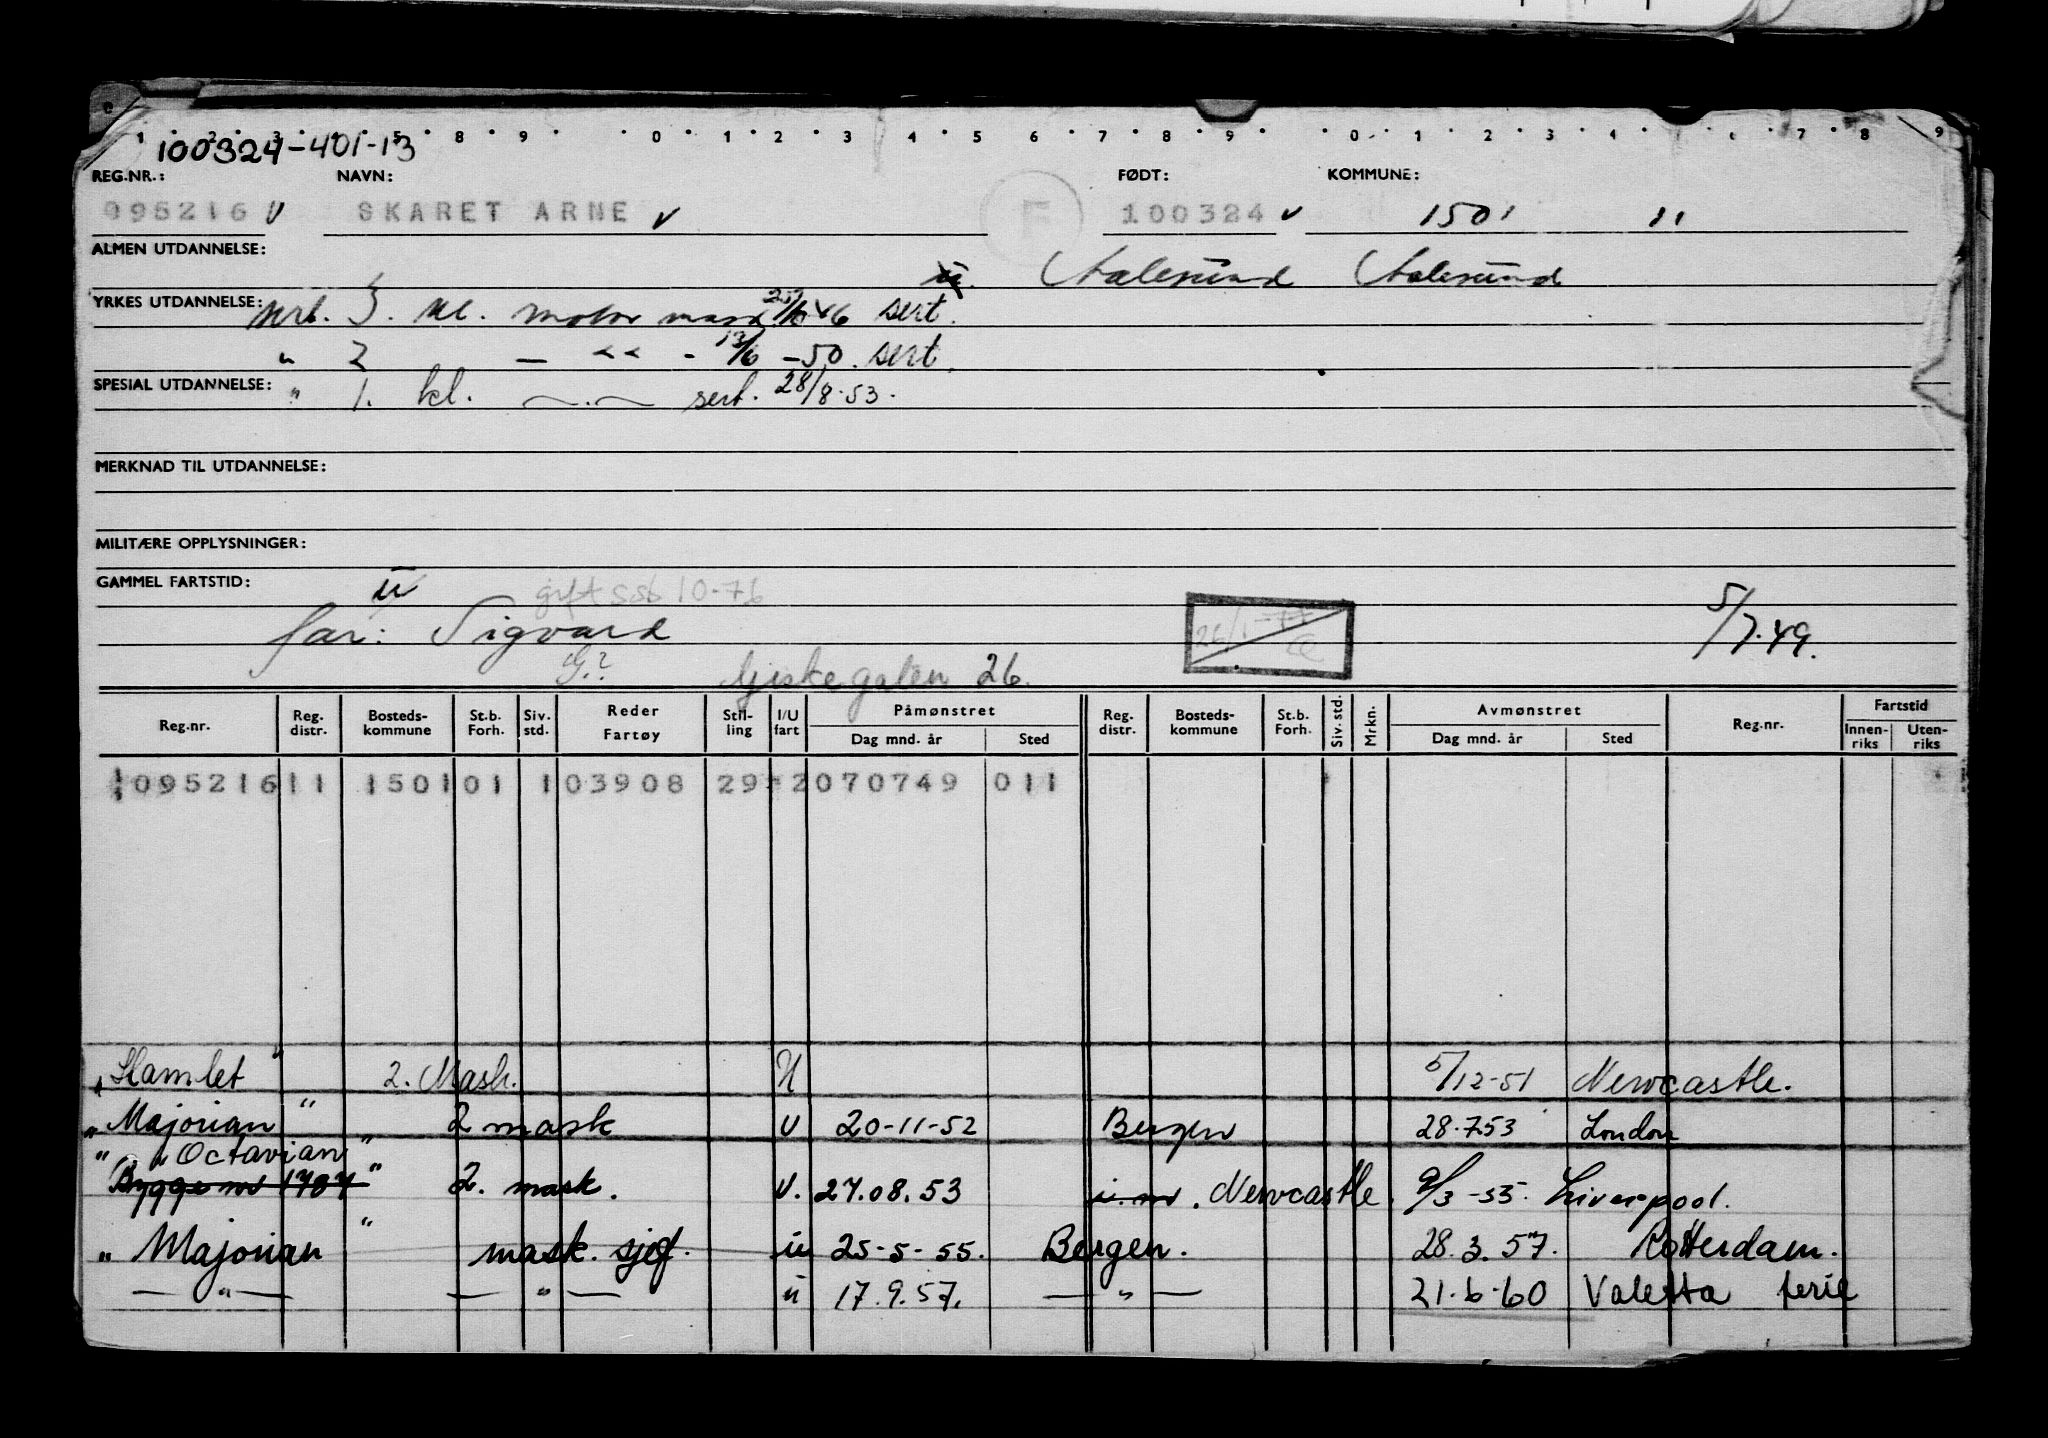 1 2 3 4 5 8 9 0 1 2 3 4 5 6 7 8 9 0 1 2 3 4 5 6 7 8 9
100324-401-13
REG.NR.: NAVN: FØDT: KOMMUNE:
095216 v SKARET ARNE v F 100324 v 1501 11
ALMEN UTDANNELSE: ü Aalesund Aalesund
YRKES UTDANNELSE: nrl. 3. kl. motor mask 46 sert.
" 2 — << - 13/6 -50. sert.
SPESIAL UTDANNELSE: " 1. kl. —.— sert. 28/8-53.
MERKNAD TIL UTDANNELSE:
MILITÆRE OPPLYSNINGER:
GAMMEL FARTSTID: ü gift ssb 10-76
far: Sigvard 26/1-77 5/7.49.
G.? Giskegaten 26.
Reg.nr. Reg. distr. Bosteds-kommune St.b. Forh. Siv. std. Reder Fartøy Stil-ling I/U fart Påmønstret Dag mnd. år Sted Reg. distr. Bosteds-kommune St.b. Forh. Siv. std. Mrkn. Avmønstret Dag mnd. år Sted Reg.nr. Fartstid Innen-riks Uten-riks
095216 11 1501 01 1 03908 29 2 070749 011
"Hamlet" 2. Mask. U 5/12-51 Newcastle.
"Majorian" 2 mask U 20-11-52 Bergen 28.7.53 London
" "Octavian"
Bygge nr 1787" 2. mask. U. 27.08.53 Newcastle. 9/3-55. Liverpool.
"Majorian" mask. sjef. ü 25-5-55. Bergen. 28.3.57. Rotterdam.
— " — — " — ü 17.9.57. — " — 21.6.60 Valetta ferie